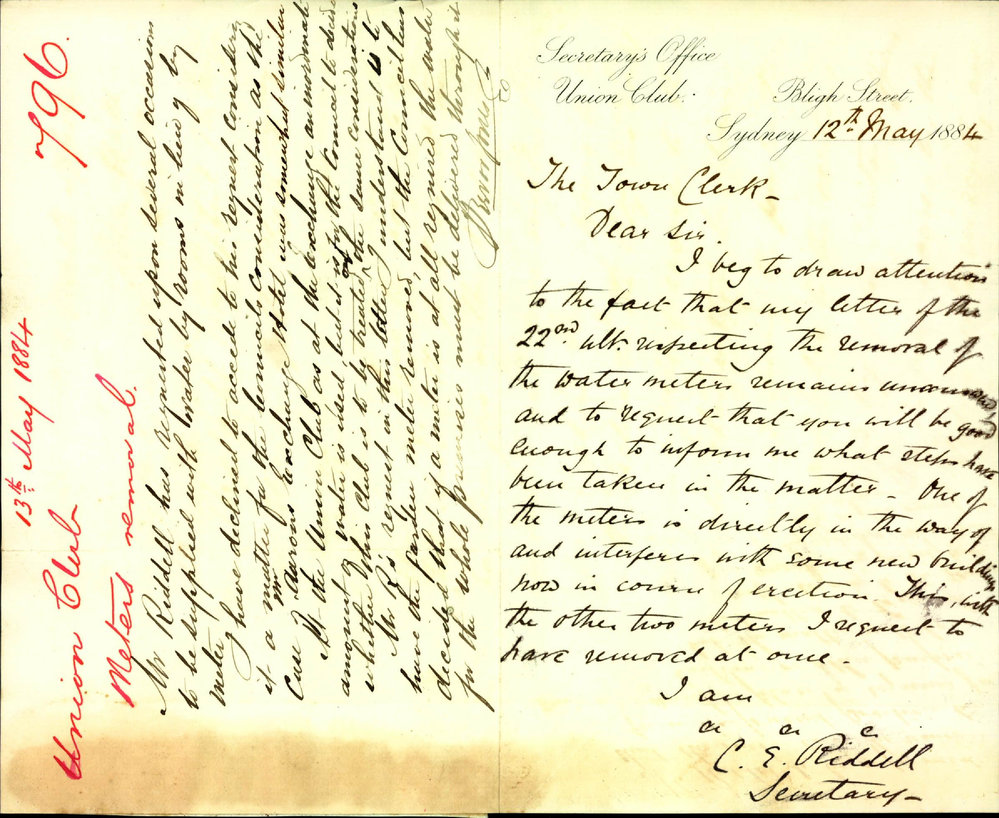 Secretary's Office
Union Club. Bligh Street.
Sydney 12th May 1884
The Town Clerk -
Dear Sir.
I beg to draw attention
to the fact that my letter of the
22nd ult. respecting the removal of
the water meters remains
and to request that you will be good
enough to inform me what steps have
been taken in the matter - One of
the meters is directly in the way of
and interferes with some new building
now in course of erection. This, with
the other two meters I request to
have removed at once.
I am
C. E. Riddell
Secretary -
796.
13th May 1884
Union Club
Meters removal.
Mr Riddell has requested upon several occasions
to be supplied with water by rooms in lieu of by
meter
I have declined to accede to his request considering
it a matter for the Council's consideration as the
Case Aarons Exchange Hotel was somewhat similar
At the Union Club as at the Exchange an inordinate
amount of water is used but it is for the Council to decide
whether Union Club is to be treated on the same considerations
Mr R's request in this letter I understand is to
have the Garden meter removed, but the Council has
decided that if a meter is at all required the water
for the whole premises must be delivered through it